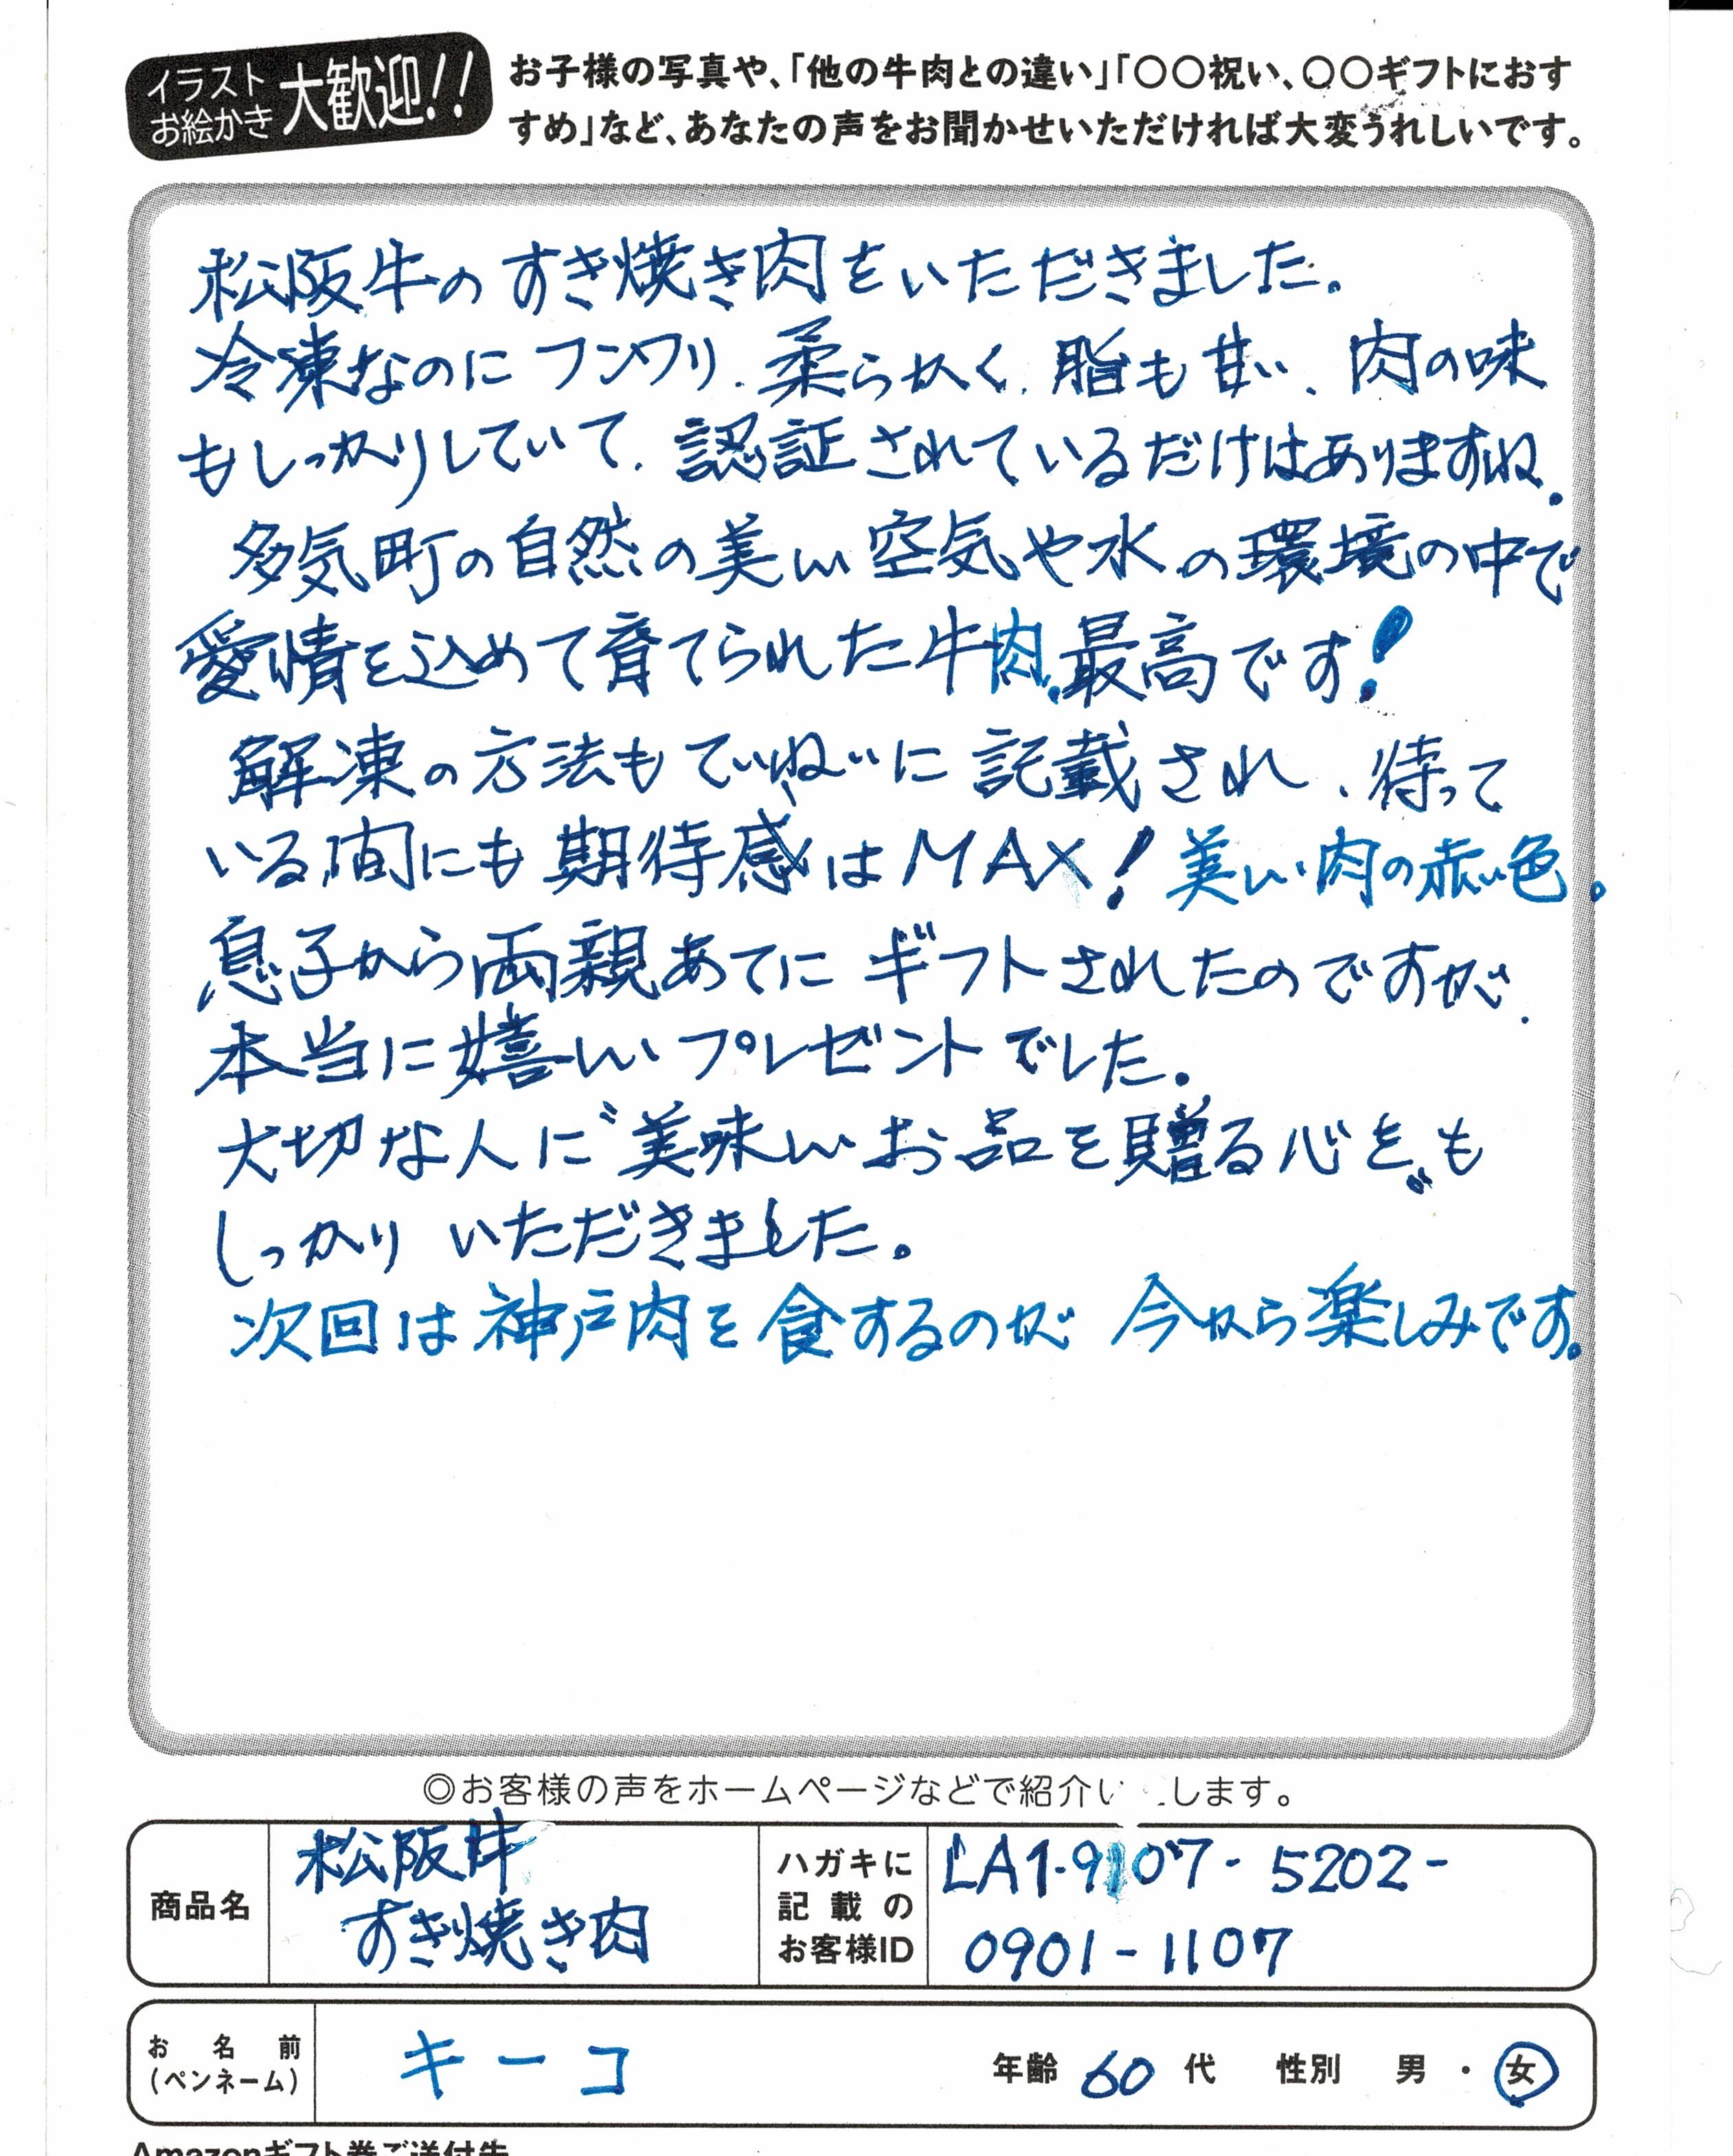 イラスト
お絵かき
大歓迎!!
お子様の写真や、「他の牛肉との違い」「〇〇祝い、〇〇ギフトにおす
すめ」など、あなたの声をお聞かせいただければ大変うれしいです。
松阪牛の すき焼き肉をいただきました。
冷凍なのに フンワリ、柔らかく、脂も甘い、肉の味
もしっかりしていて、認証されているだけはありますね。
多気町の自然の美しい空気や水の環境の中で
愛情を込めて育てられた牛肉、最高です!
解凍の方法もていねいに記載され、待って
いる間にも期待感はMAX!美しい肉の赤い色。
息子から両親あてに ギフトされたのですが、
本当に嬉しいプレゼントでした。
大切な人に〝美味しいお品を贈る心を〟も
しっかり いただきました。
次回は神戸肉を食するのが 今から楽しみです。
◎お客様の声をホームページなどで紹介い します。
商品名
松阪牛
すき焼き肉
ハガキに
記載の
お客様ID
LA1-9107-5202-
0901-1107
お名前
(ペンネーム)
キーコ
年齢 60 代 性別 男・女
Amazonギフト券ご送付先